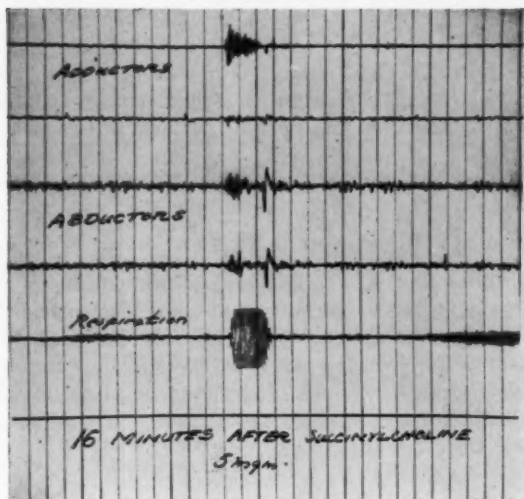 ADDUCTORS
ABDUCTORS
Respiration
16 MINUTES AFTER SUCCINYLCHOLINE
5 mgm.